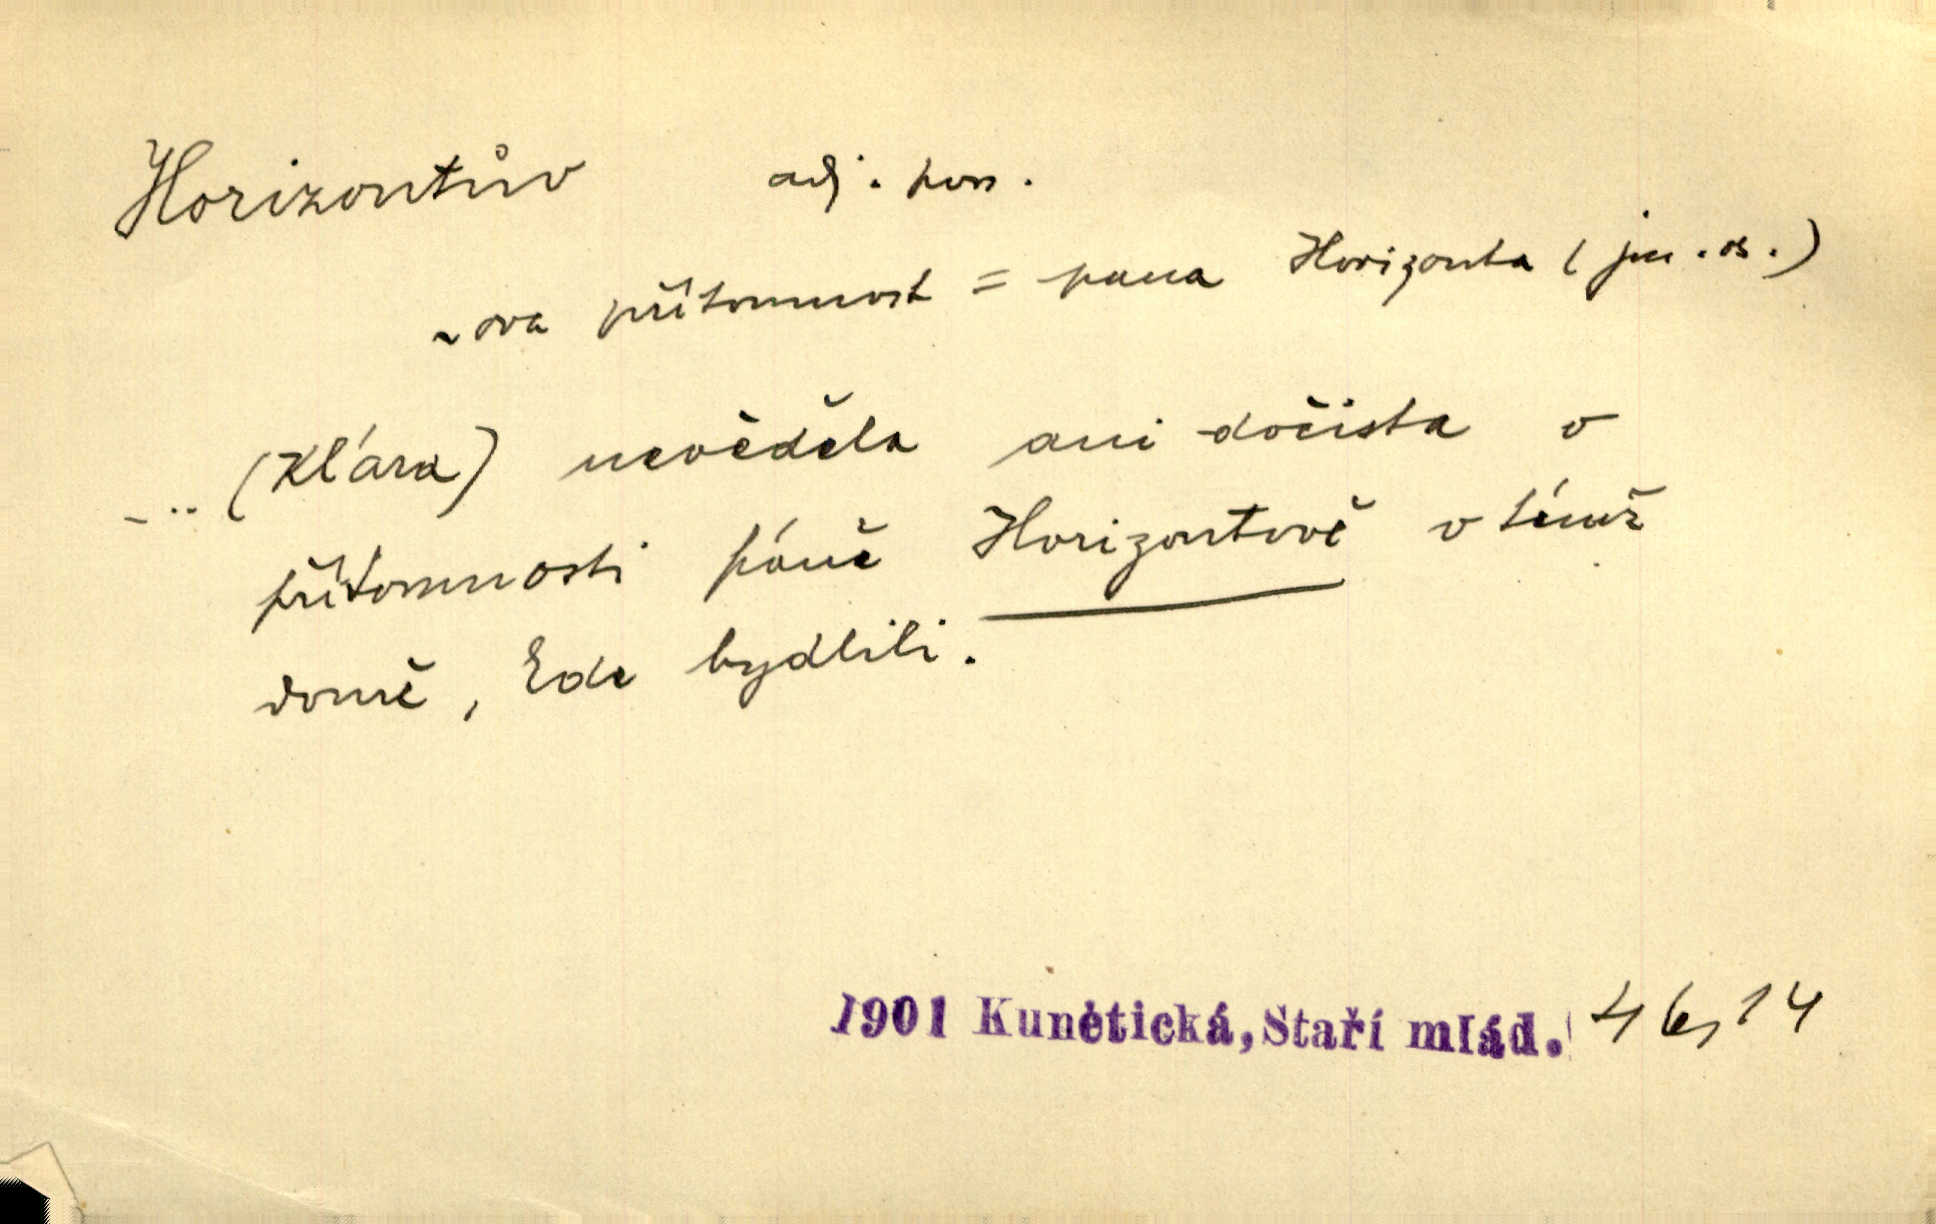 Horizontův adj. poss.
~ova přítomnost = pana Horizonta (jm. os.)
... (Klára) nevěděla ani dočista o
přítomnosti páně Horizontově v témž
domě, kde bydlili.
1901 Kunětická, Staří mlád. 46, 14